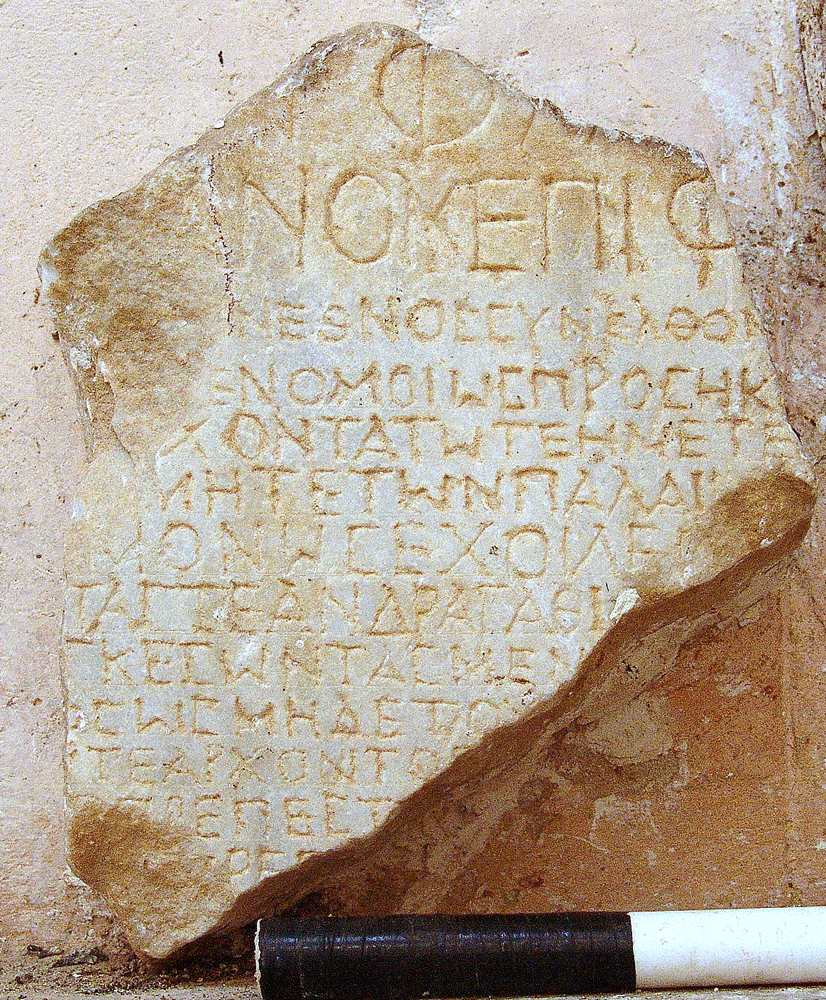 Φ
ΝΟΚΕΠΙΦ
ΝΕΘΝΟΣΣΥΝΕΛΘΟΝ
ΕΝΟΜΟΙΩΣΠΡΟΣΗΚ
ΧΟΝΤΑΤΩΤΕΗΜΕΤΕ
ΜΗΤΕΤΩΝΠΑΛΑΙ
ΜΟΝΗΣΕΧΟΙΛΕΙ
ΤΑΓΤΕΑΝΔΡΑΓΑΘΙ
ΚΕΣΩΝΤΑΣΜΕΝ
ΣΩΙΣΜΗΔΕΠΟ
ΤΕΑΡΧΟΝΤΟΣ
ΕΠΕΣΤ